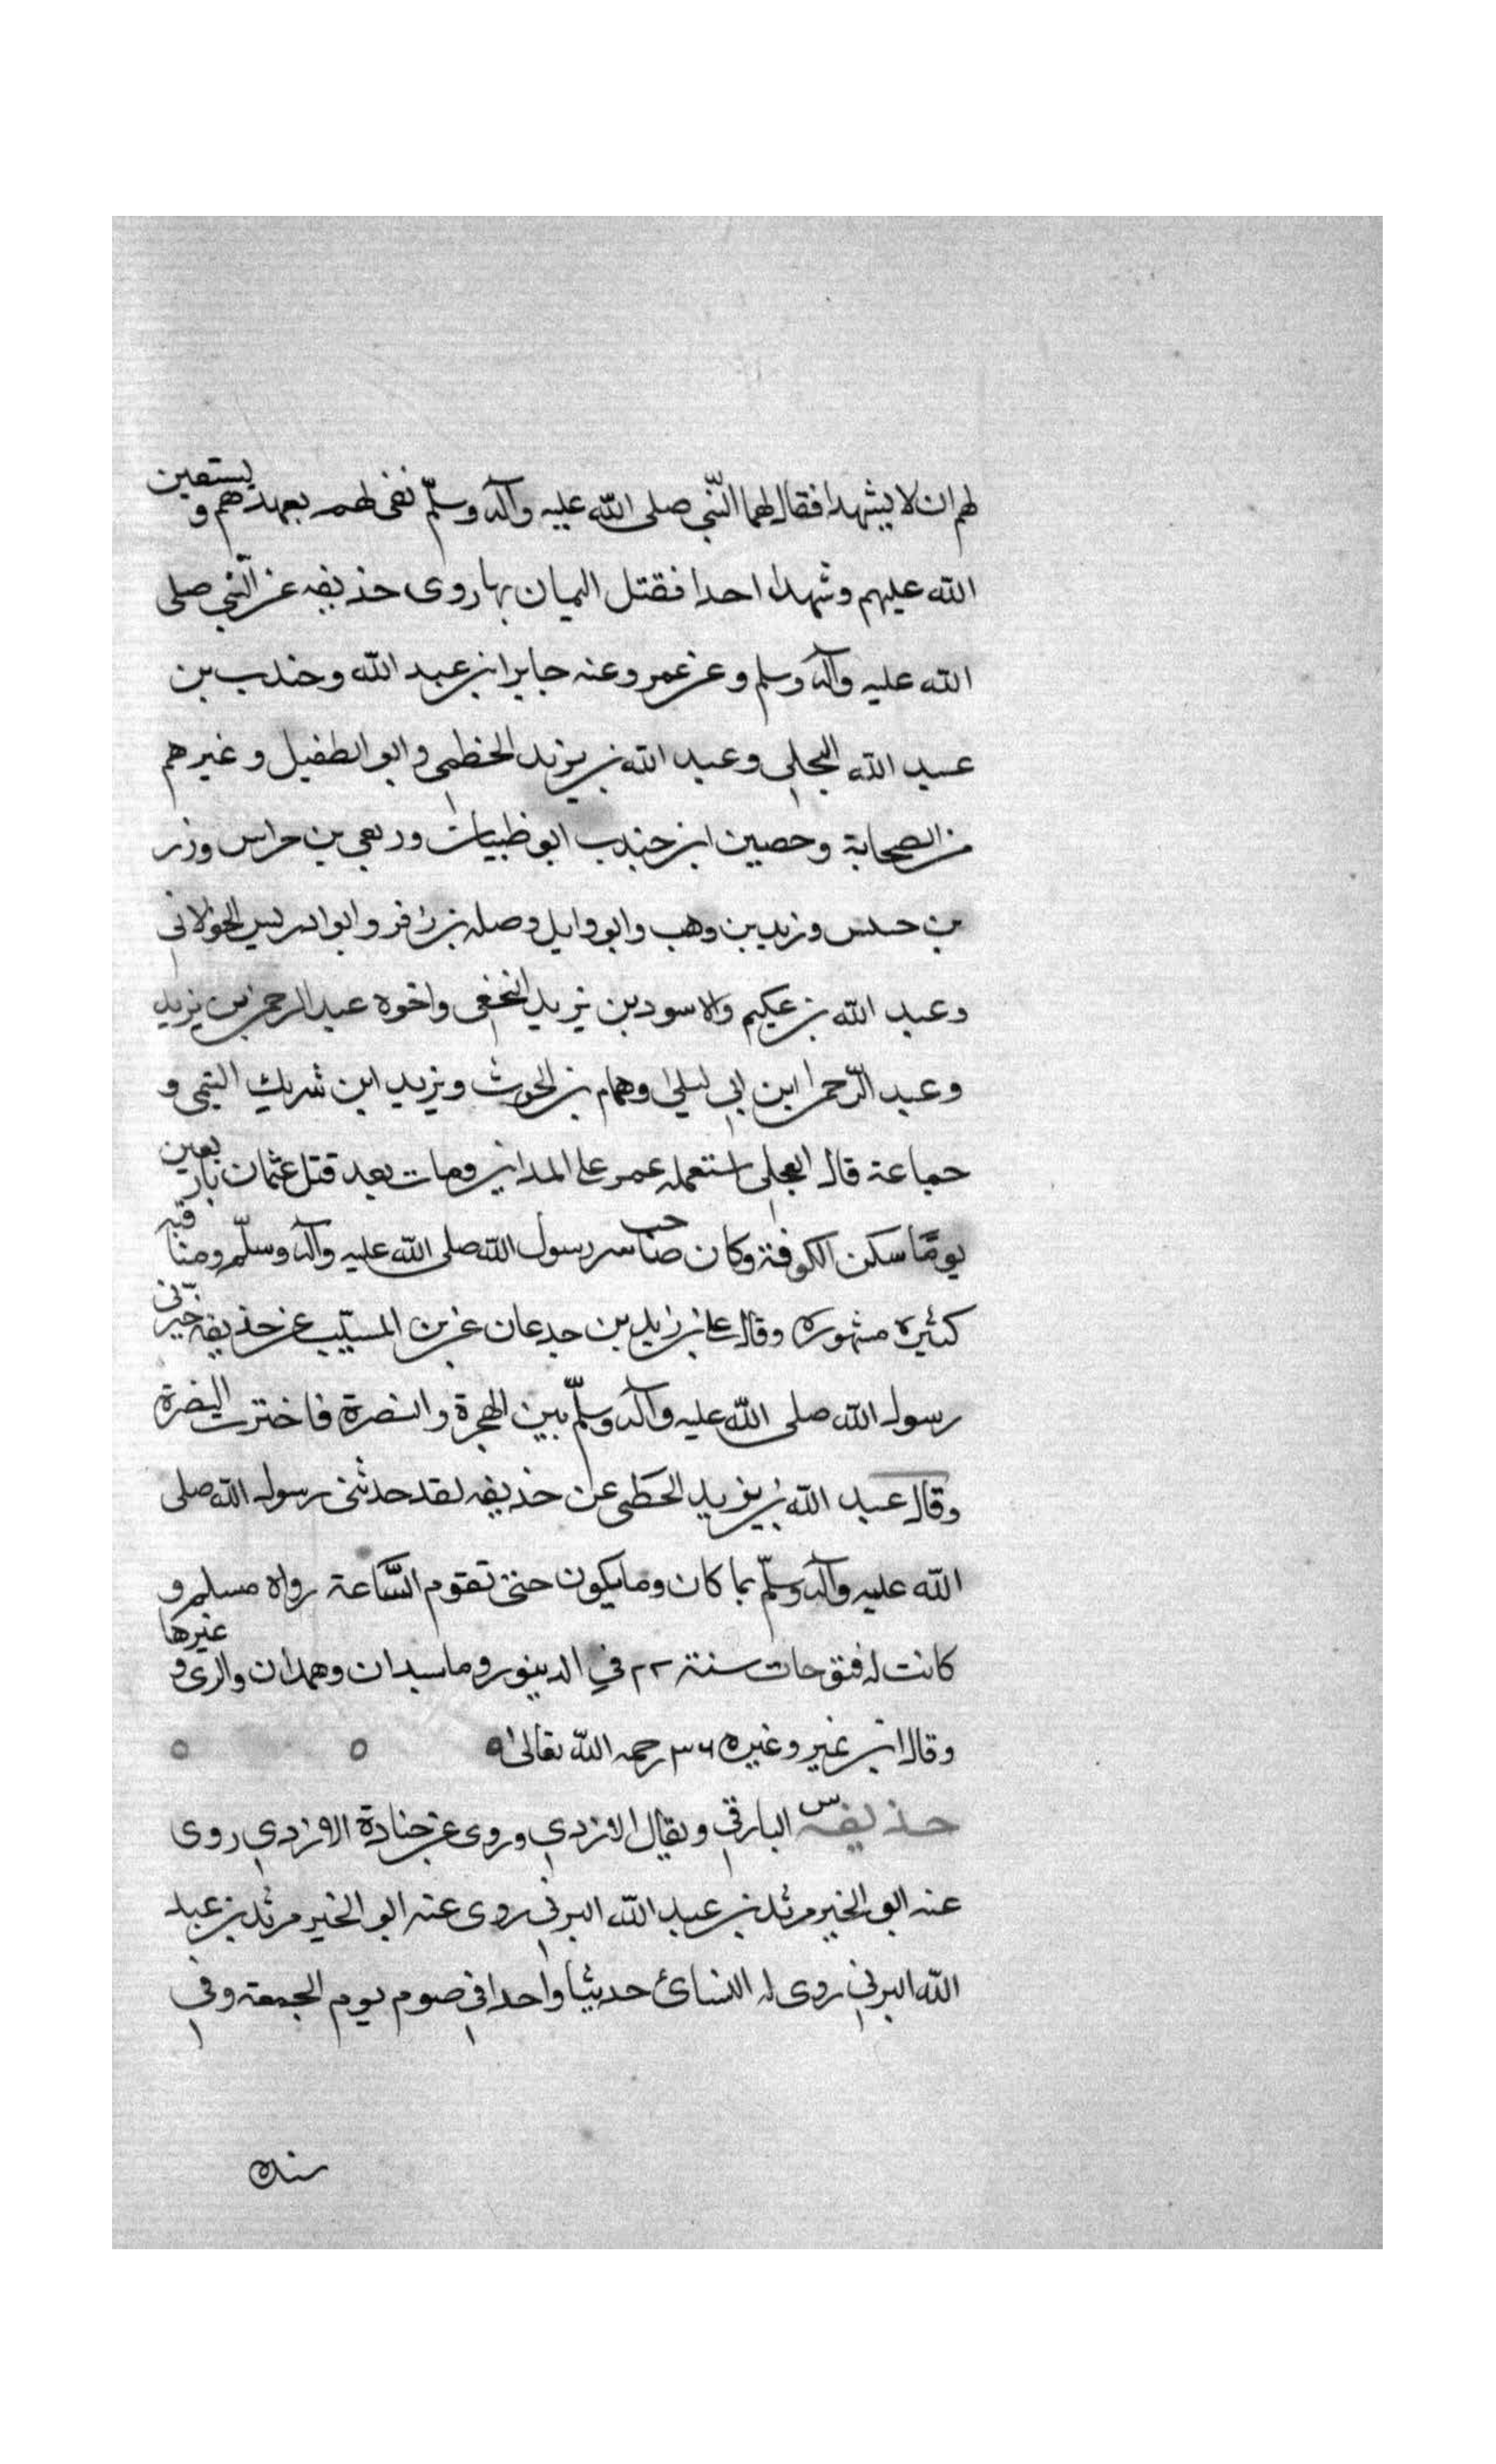 لهم ان لا يشهدا فقال لهما النّبي صلى الله عليه وآله وسلّم نفي لهم بعهدهم و يستعين
الله عليهم وشهدا احدا فقتل اليمان بها روى حذيفه عن النّبي صلى
الله عليه وآله وسلم وعن عمر وعنه جابر ابن عبد الله وجندب بن
عبد الله البجلي وعبد الله بن يزيد الخطمي وابو الطفيل وغيرهم
من الصحابة وحصين ابن جندب ابو ظبيات وربعي بن حراش وزر
بن حبس وزيد بن وهب وابو وايل وصله بن زافر وابو ادريس الخولاني
وعبد الله بن عكيم والاسود بن يزيد النخعي واخوه عبد الرحمن بن يزيد
وعبد الرّحمن ابن ابي ليلى وهمام بن الحرث ويزيد ابن شريك التيمي و
جماعة قال العجلي استعمله عمر على المداين ومات بعد قتل عثمان باربعين
يومًا سكن الكوفة وكان صاحب سر رسول الله صلى الله عليه وآله وسلّم ومناقبه
كثيره مشهوره وقال علي بن زيد بن جدعان عن بن المسيّب عن حذيفه خيّرني
رسول الله صلى الله عليه وآله وسلّم بين الهجرة والنصرة فاخترت النصرة
وقال عبد الله بن يزيد الخطمي عن حذيفه لقد حدثني رسول الله صلى
الله عليه وآله وسلّم بما كان وما يكون حتى تقوم السّاعة رواه مسلم و
كانت له فتوحات سنة ٢٢ في الدينور وماسبدان وهمدان والري وغيرها
وقال ابن نمير وغيره ٣٦ رحمه الله تعالى
حذيفه س البارقي ويقال الازدي وروى عن جنادة الازدي روى
عنه ابو الخير مرثد بن عبد الله اليزني روى عنه ابو الخير مرثد بن عبد
الله اليزني روى له النسائ حديثا واحدا في صوم يوم الجمعة وفي